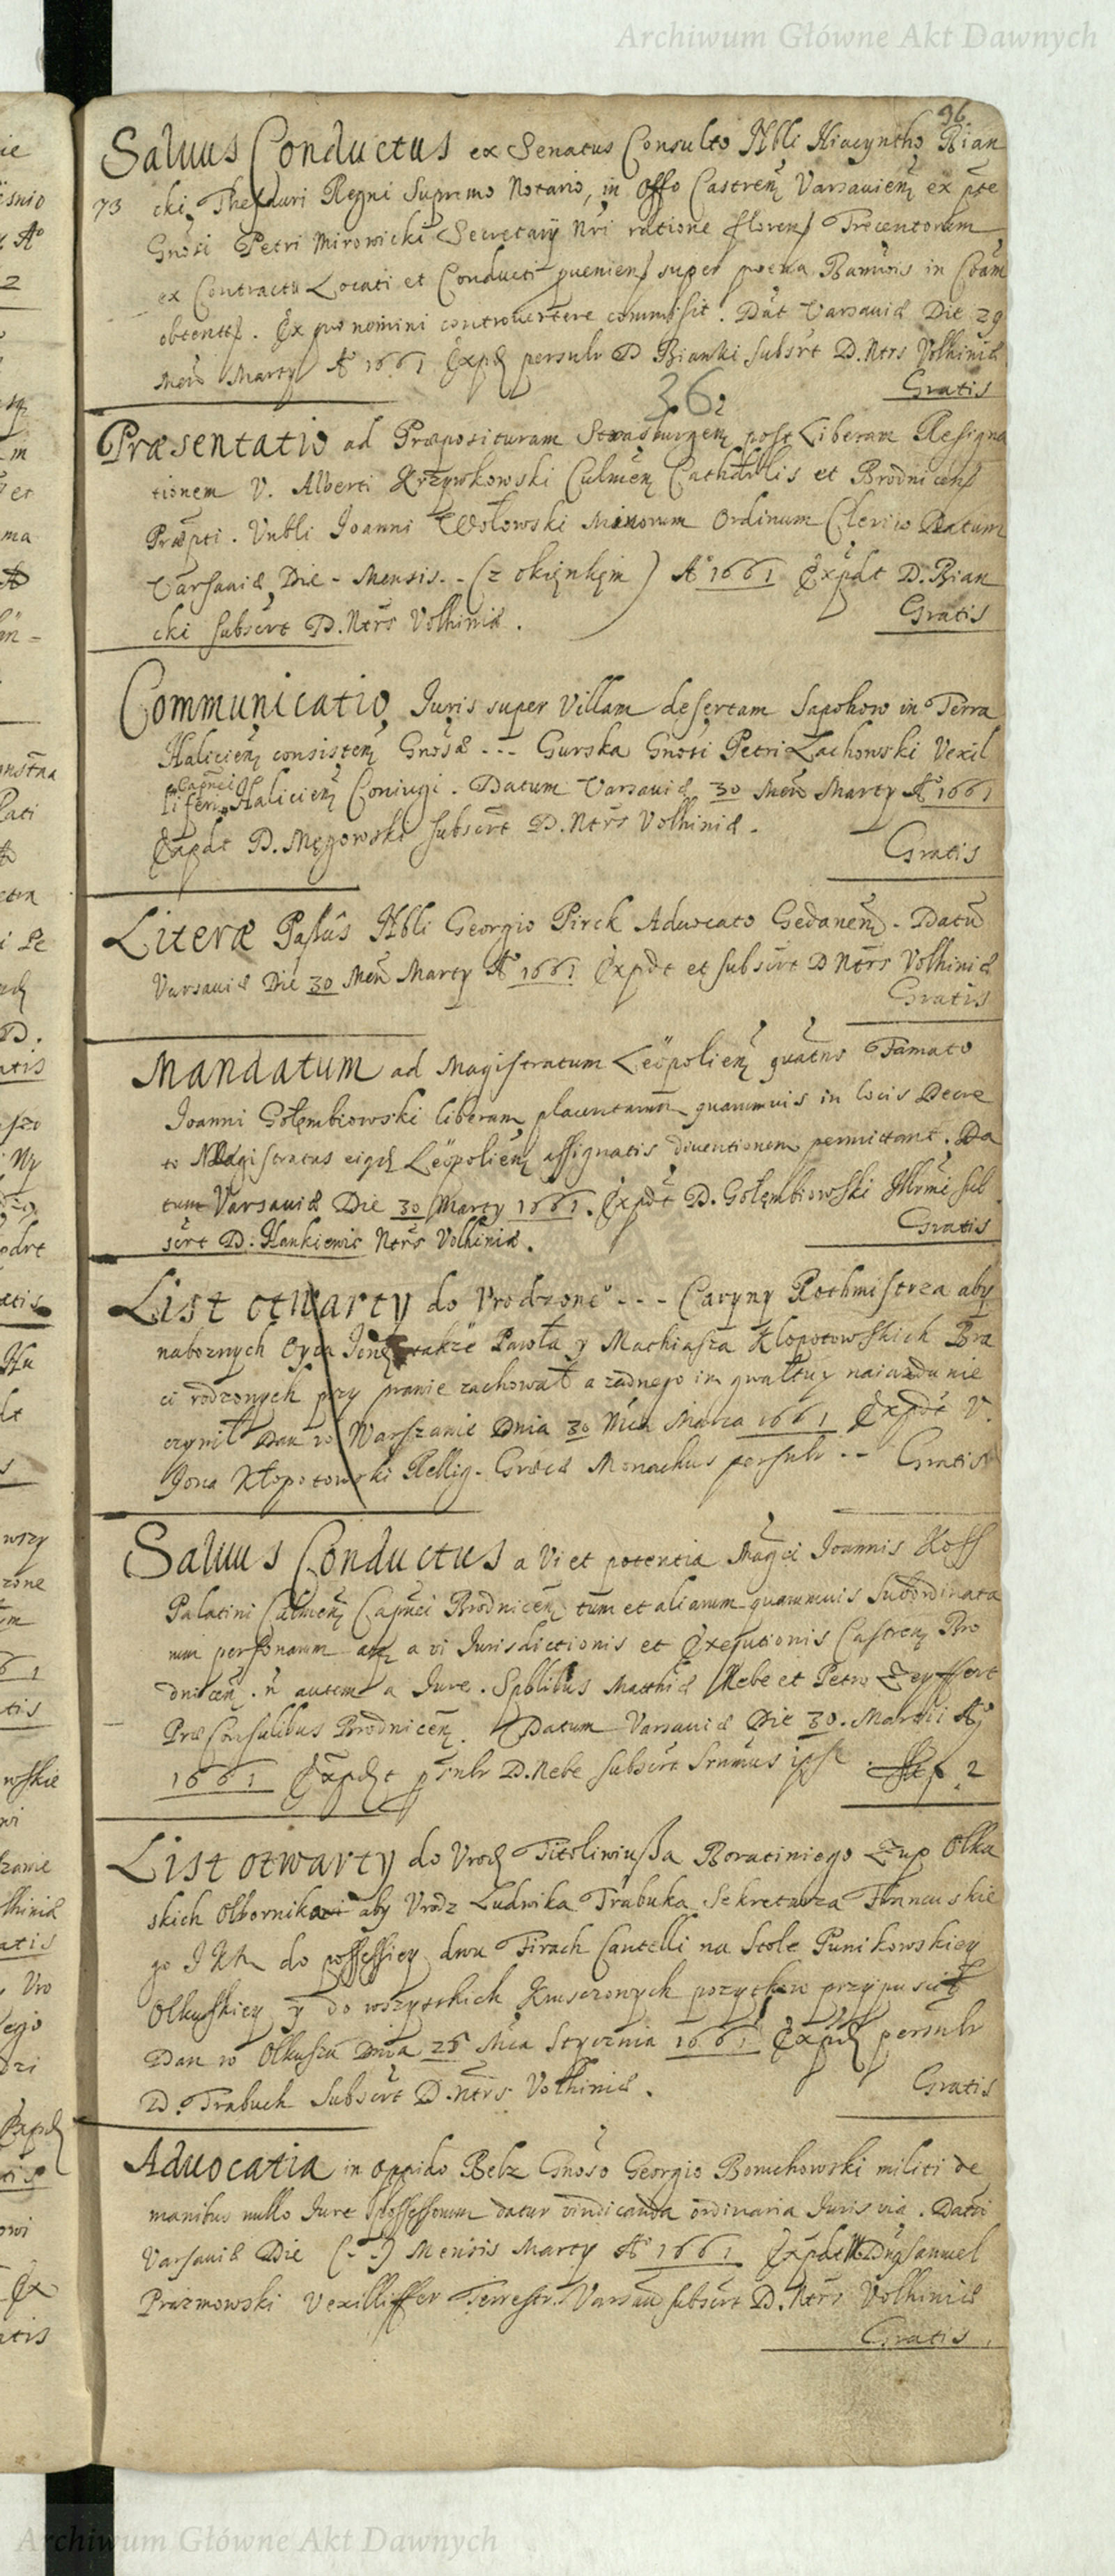 Archiwum Główne Akt Dawnych
96
Saluus Conductus ex Senatus Consulto Nbli Hiacyntho Bian
73 cki Thesauri Regni Supremo Notario, in Offo Castren Varsauien ex pte
Gnosi Petri Mirowicki Secretarij Nri ratione floren Trecentorum
ex Contractu Locati et Conducti prouenien super poena Bannitois in Coam
obtent. Ex quo nomini controuertere commisit. Dat Varsauiae Die 29
Mens Marty Ao 1661 Expd persnlr D Bianki subscrt D. Ntrs Volhiniae
Gratis
36
Præsentatio ad Præposituram Strasburgen post Liberam Resigna
tionem V. Alberti Krzywkowski Culmen Cathdrlis et Brodnicens
Præpti. Vnbli Joanni Wołowski Minorum Ordinum Clerico Datum
Varsauiæ Die - Mensis - (z okięnkięm) Ao 1661 Expdt D. Bian
cki subscrt D. Ntrs Volhiniæ.
Gratis
Communicatio Juris super Villam desertam Sapohow in Terra
Halicien consisten Gnosæ --- Gurska Gnosi Petri Lachowski Vexil
liferi Capnei Halicien Coniugi. Datum Varsauiæ 30 Men Marty Ao 1661
Expdt D. Męgowski subscrt D. Ntrs Volhiniæ.
Gratis
Literæ Passûs Nbli Georgio Pirck Aduocato Gedanen. Datũ
Varsauiæ Die 30 Men Marty Ao 1661 Expdt et subscrt D Ntrs Volhiniæ
Gratis
Mandatum ad Magistratum Leöpolien quatns Famato
Joanni Gołembiowski liberam placentarum quarumuis in locis Decre
to Magistratus eiqd Leöpolien assignatis diuentionem permittant. Da
tum Varsauiæ Die 30 Marty 1661. Expdt D. Gołembiowski sub
scrt D: Hankiewic Ntrs Volhiniæ.
Gratis
List otwarty do Vrodzone° --- Caryny Rothmistrza aby
naboznych Oyca także Pawła y Mathiasza Kłopotowskich Bra
ci rodzonych przy prawie zachował a zadnego im gwałtu y naiazdu nie
czynił Dan w Warszawie Dnia 30 Mca Marca 1661 Expdt V.
Jona Kłopotowski Rellig. Græcæ Monachus persnlr -- Gratis
Saluus Conductus a Vi et potentia Magci Joannis Koss
Palatini Culmen Capnei Brodnicen tum et aliarum quarumuis subordinata
rum personarum atq a vi Jurisdictionis et Exequtionis Castren Bro
dnicen. n autem a Jure. Spblibus Matthiæ Nebe et Petro Zeyffert
Præ Consulibus Brodnicen. Datum Varsauiæ Die 30. Martii Ao
1661 Expdt prsnlr D. Nebe subscrt Srnmus ipse. 2
List otwarty do Vrod Titoliwiußa Boratiniego Zup Olku
skich Olbornika aby Vrodz Ludwika Trabuka Sekretarza Francuskie
go J K M do possessiey dwu Tirach Cantelli na Stole Punikowskiey
Olkuskiey y do wszytskich Kruszcowych pozytkow przypuscił
Dan w Olkuszu Dnia 25 Mca Stycznia 1661 Expd persnlr
D. Trabuch Subscrt D. Ntrs Volhiniæ.
Gratis
Aduocatia in oppido Belz Gnoso Georgio Boruchowski militi de
manibus nullo Jure possessorum datur vindicanda ordinaria Juris via. Datũ
Varsauiæ Die (- -) Mensis Marty Ao 1661 Expdt Dnus Samuel
Prazmowski Vexilliffer Terrestr. Varsau subscrt D. Ntrs Volhiniæ
Gratis.
Archiwum Główne Akt Dawnych